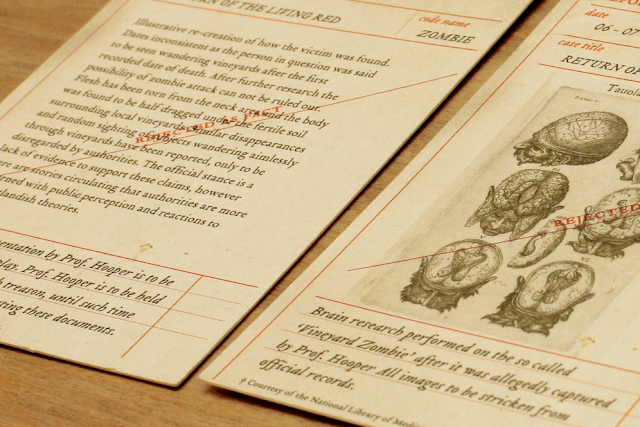 RN OF THE LIVING RED
code name
ZOMBIE
Illustrative re-creation of how the victim was found.
Dates inconsistent as the person in question was said
to be seen wandering vineyards after the first
recorded date of death. After further research the
possibility of zombie attack can not be ruled out.
Flesh has been torn from the neck area and the body
was found to be half dragged under the fertile soil
surrounding local vineyards. Similar disappearances
and random sighting of objects wandering aimlessly
through vineyards have been reported, only to be
disregarded by authorities. The official stance is a
lack of evidence to support these claims, however
ere are stories circulating that authorities are more
rned with public perception and reactions to
landish theories.
REJECTED AS FACT
entation by Prof. Hooper is to be
play. Prof. Hooper is to be held
h treason, until such time
ting these documents.
date
06 - 07
case title
RETURN OF
Tauola
REJECTED
Brain research performed on the so called
'Vineyard Zombie' after it was allegedly captured
by Prof. Hooper All images to be stricken from
official records.
† Courtesy of the National Library of Medic